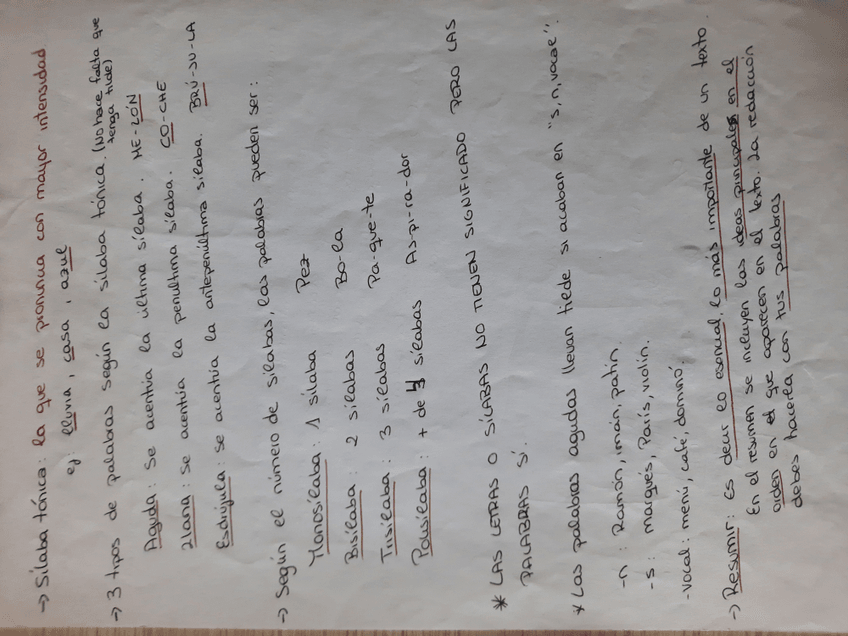 → Sílaba tónica: la que se pronuncia con mayor intensidad
ej: lluvia, casa, azul
→ 3 tipos de palabras según la sílaba tónica. (No hace falta que tenga tilde)
Aguda: Se acentúa la última sílaba. ME-LÓN
Llana: Se acentúa la penúltima sílaba. CO-CHE
Esdrújula: se acentúa la antepenúltima sílaba. BRÚ-JU-LA
→ Según el número de sílabas, las palabras pueden ser:
Monosílaba: 1 sílaba Pez
Bisílaba: 2 sílabas Bo-la
Trisílaba: 3 sílabas Pa-que-te
Polisílaba: + de 3 sílabas As-pi-ra-dor
* LAS LETRAS O SÍLABAS NO TIENEN SIGNIFICADO PERO LAS
PALABRAS SÍ.
* Las palabras agudas llevan tilde si acaban en "s, n, vocal".
-n: Ramón, imán, patín.
-s: marqués, París, violín.
-vocal: menú, café, dominó.
→ Resumir: Es decir lo esencial, lo más importante de un texto.
En el resumen se incluyen las ideas principales en el
orden en el que aparecen en el texto. La redacción
debes hacerla con tus palabras